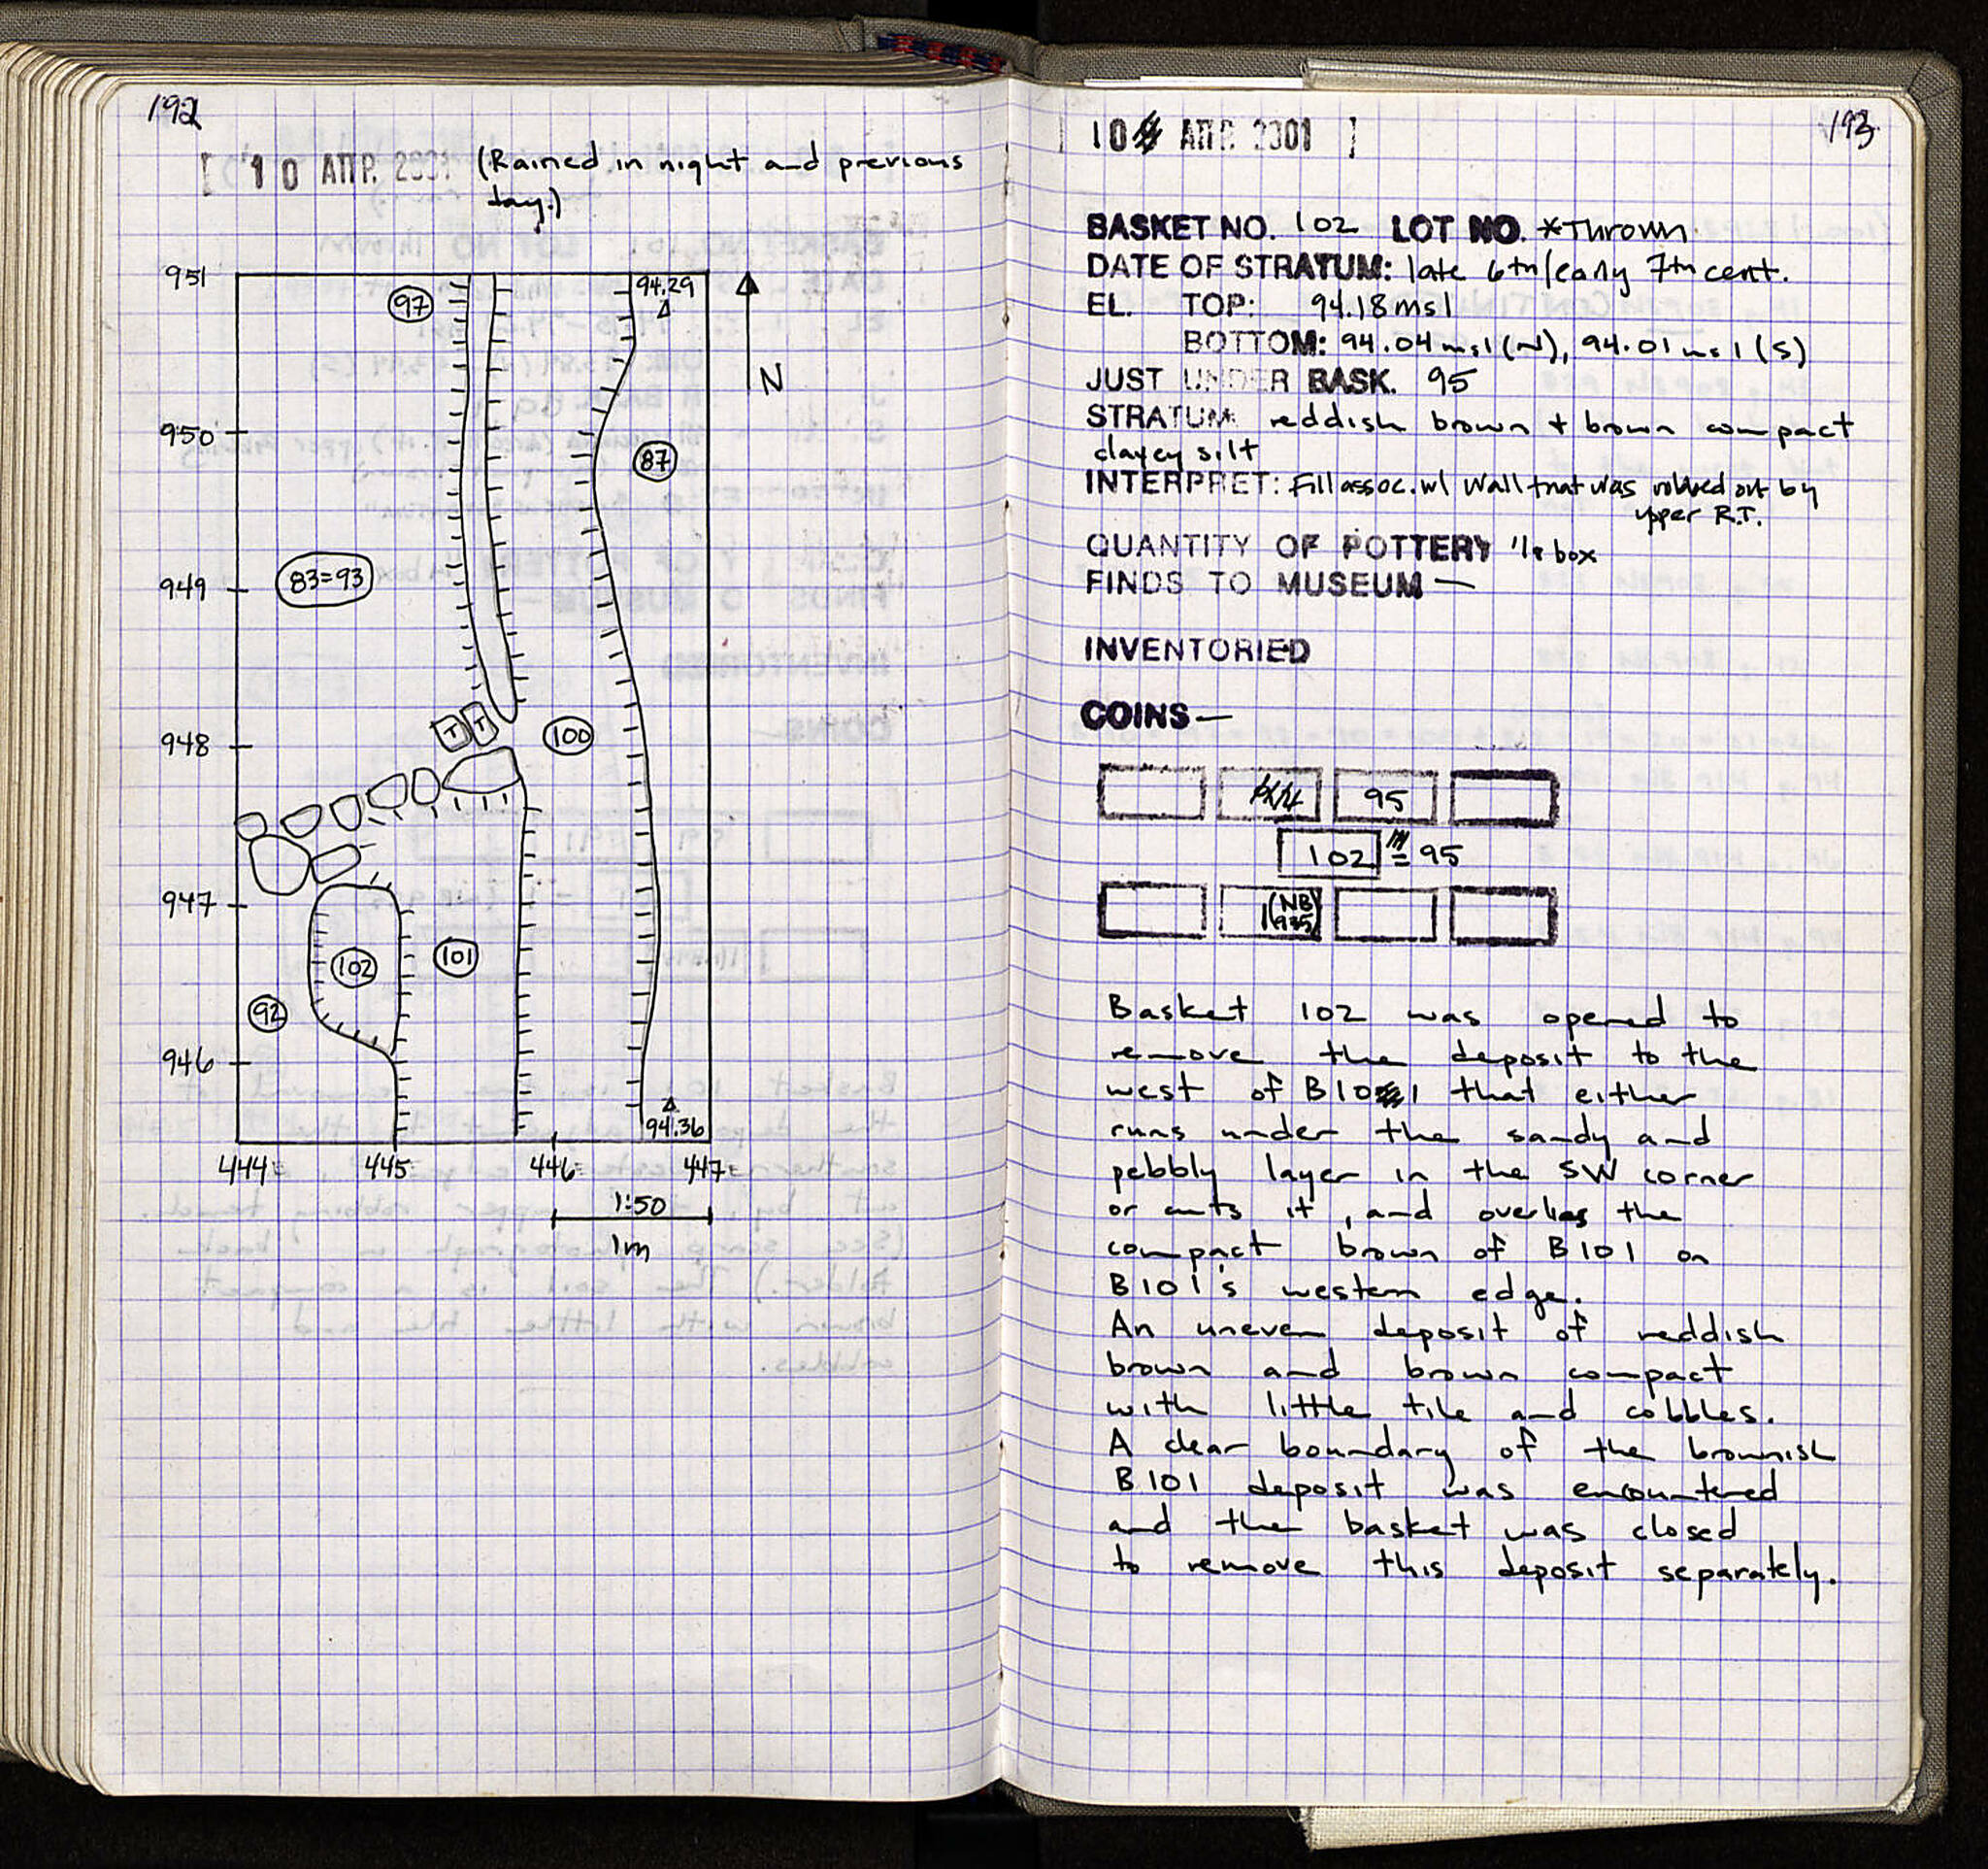 192
10 ΑΠΡ. 2001 (Rained in night and previous
day.)
951
97
94.29
N
950
87
949
83=93
T T
948
100
947
102
101
92
946
94.36
444 445 446 447
1:50
1m
193
10 ΑΠΡ. 2001
BASKET NO. 102 LOT NO. *Thrown
DATE OF STRATUM: late 6th/early 7th cent.
EL. TOP: 94.18 msl
BOTTOM: 94.04 msl (N), 94.01 msl (S)
JUST UNDER BASK. 95
STRATUM: reddish brown + brown compact
clayey silt
INTERPRET: Fill assoc. w/ Wall that was robbed out by
upper R.T.
QUANTITY OF POTTERY 1/8 box
FINDS TO MUSEUM —
INVENTORIED
COINS —
95
102 = 95
(NB
Basket 102 was opened to
remove the deposit to the
west of B101 that either
runs under the sandy and
pebbly layer in the SW corner
or cuts it, and overlies the
compact brown of B101 on
B101's western edge.
An uneven deposit of reddish
brown and brown compact
with little tile and cobbles.
A clear boundary of the brownish
B101 deposit was encountered
and the basket was closed
to remove this deposit separately.